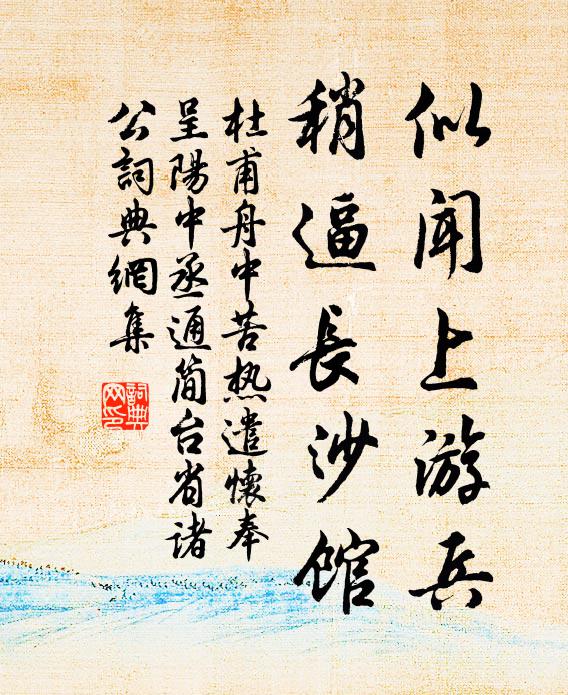 似闻上游兵
稍逼長沙馆
杜甫舟中苦热遣懷奉
呈陽中丞通简台省诸
公詞典網集
詞典
网印